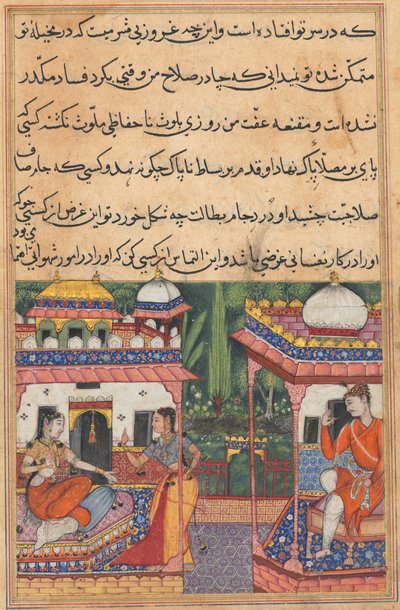 که در سر تو افتاده است و این چه غروریست که در مخیلهٔ تو
متمکن شده تو نمیدانی که چادر صلاح من وقتی بکرد فساد مکدر
نشده است و مقنعه عفت من روزی بلوث ناحفاظی ملوث نکشته کسی که
پای بر مصلا پاک نهاد او قدم بر بساط ناپاک چکونه نهد و کسی که جام صاف
صلاحیت چشید او درد جام بطالت چه شکل خورد تو این غرض از کسی جو که
او را در کار نفسانی غرضی باشد و این التماس از کسی کن که او را در امور شهوانی